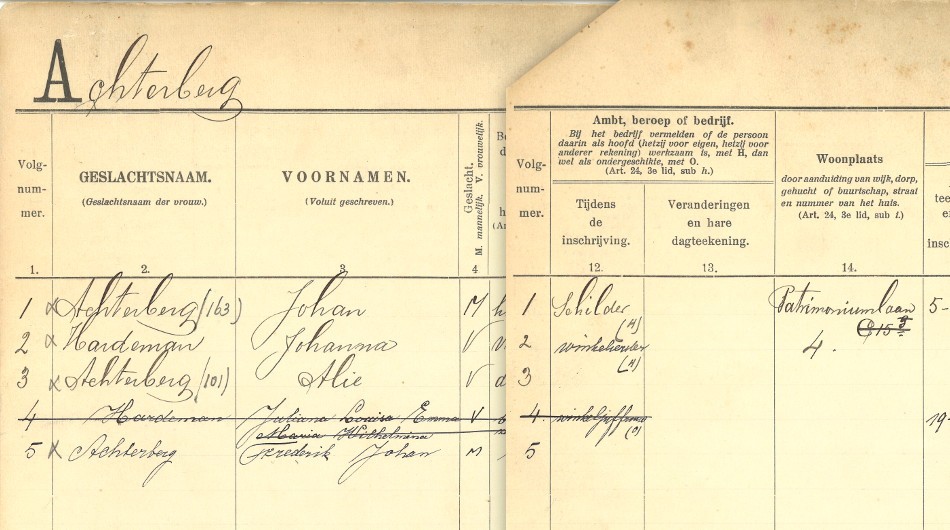 Achterberg
Volg-
num-
mer.
GESLACHTSNAAM.
(Geslachtsnaam der vrouw.)
VOORNAMEN.
(Voluit geschreven.)
Geslacht.
M. mannelijk. V. vrouwelijk.
1. 2. 3. 4
1 Achterberg (163) Johan M
2 Hardeman Johanna V
3 Achterberg (101) Alie V
4 Hardeman Juliana Louise Emma V
Maria Wilhelmina
5 Achterberg Frederik Johan M
Volg-
num-
mer.
Ambt, beroep of bedrijf.
Bij het bedrijf vermelden of de persoon
daarin als hoofd (hetzij voor eigen, hetzij voor
anderer rekening) werkzaam is, met H, dan
wel als ondergeschikte, met O.
(Art. 24, 3e lid, sub h.)
Tijdens
de
inschrijving.
Veranderingen
en hare
dagteekening.
Woonplaats
door aanduiding van wijk, dorp,
gehucht of buurtschap, straat
en nummer van het huis.
(Art. 24, 3e lid, sub i.)
12. 13. 14.
1 Schilder Patrimoniumlaan 5-
(H)
2 winkelierster 4.
(H)
3
4 winkeljuffrouw 19-
(O)
5